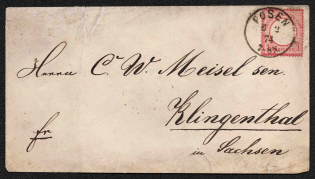 POSEN
2
74
Herrn C. W. Meisel sen.
Klingenthal
fr
in Sachsen